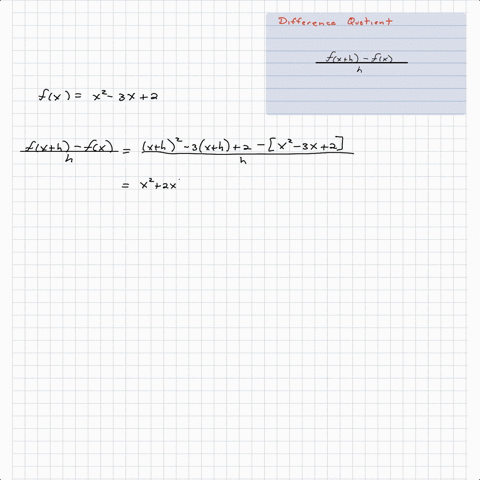 Difference Quotient
f(x+h) - f(x)
h
f(x) = x² - 3x + 2
f(x+h) - f(x) = (x+h)² - 3(x+h) + 2 - [x² - 3x + 2]
h h
= x² + 2x